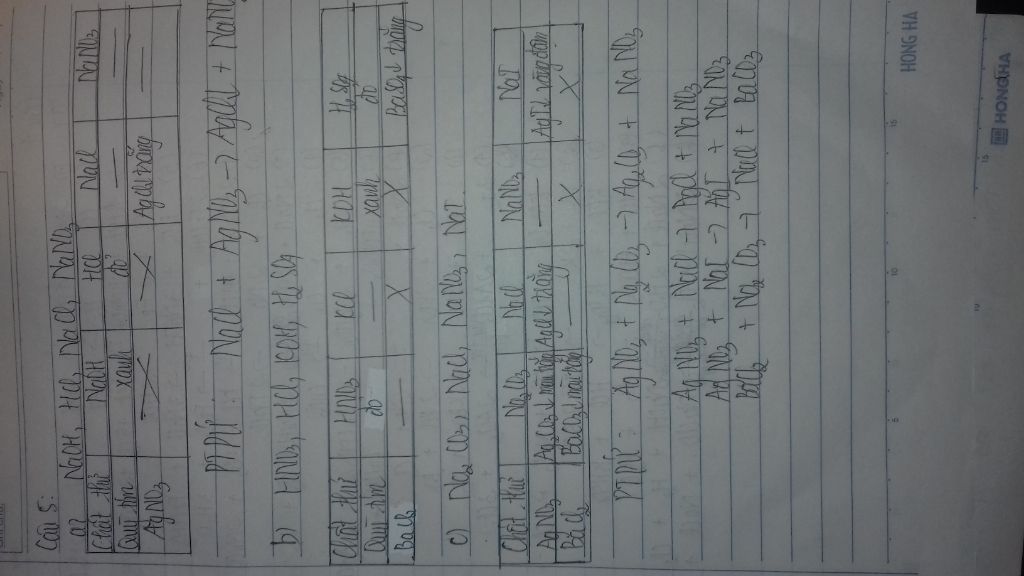 Câu 5:
a) NaOH, HCl, NaCl, NaNO3
Chất thử NaOH HCl NaCl NaNO3
Quỳ tím xanh đỏ — —
AgNO3 X X AgCl↓ trắng —
PTPƯ NaCl + AgNO3 → AgCl↓ + NaNO3
b) HNO3, HCl, KOH, H2SO4
Chất thử HNO3 KCl KOH H2SO4
Quỳ tím đỏ — xanh đỏ
BaCl2 — X X BaSO4↓ trắng
c) Na2CO3, NaCl, NaNO3, NaI
Chất thử Na2CO3 NaCl NaNO3 NaI
AgNO3 Ag2CO3↓ màu trắng AgCl↓ trắng — AgI↓ vàng đậm
BaCl2 BaCO3↓ màu trắng — X X
PTPƯ: AgNO3 + Na2CO3 → Ag2CO3 + NaNO3
AgNO3 + NaCl → AgCl + NaNO3
AgNO3 + NaI → AgI + NaNO3
BaCl2 + Na2CO3 → NaCl + BaCO3
HONG HA
HONGHA
5 10 15